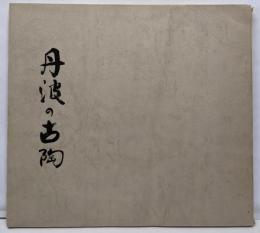 丹波の古陶